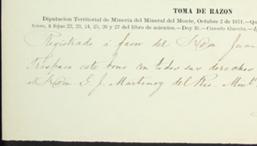 TOMA DE RAZON
Diputacion Territorial de Minería del Mineral del Monte, Octubre 2 de 1871.—
á fojas 22, 23, 24, 25, 26 y 27 del libro de asientos.—Doy fé.—
Registrado á favor del Sr Don Juan
traspasa este bono con todos sus derechos
al Sr Don E. J. Martinez del Rio.